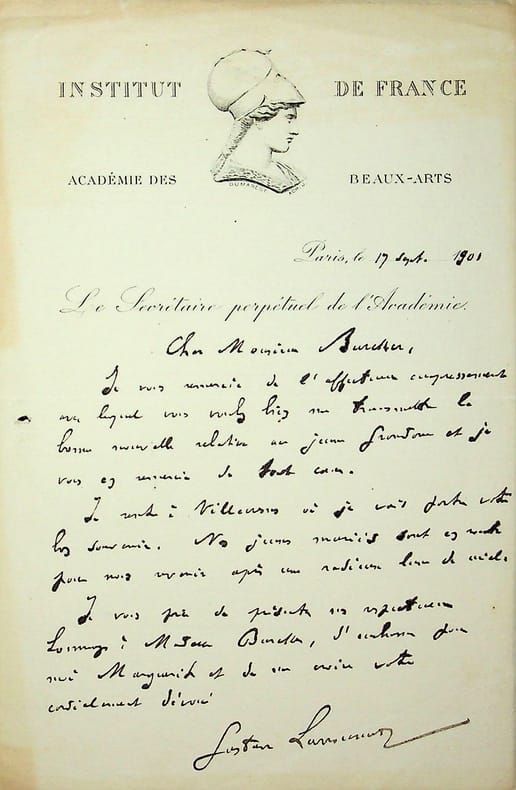 INSTITUT DE FRANCE
ACADÉMIE DES BEAUX-ARTS
Paris, le 17 Sept. 1901
Le Secrétaire perpétuel de l'Académie.
Cher Monsieur
Je vous remercie de l'affectueux empressement
avec lequel vous voulez bien me transmettre la
bonne nouvelle relative au jeune et je
vous en remercie de tout cœur.
Je rentre à où je vais porter votre
bon souvenir. Nos jeunes mariés sont en route
pour nous revenir après une radieuse lune de miel.
Je vous prie de présenter mes respectueux
hommages à Madame d'embrasser pour
moi Marguerite et de me croire votre
cordialement dévoué
Gustave Larroumet